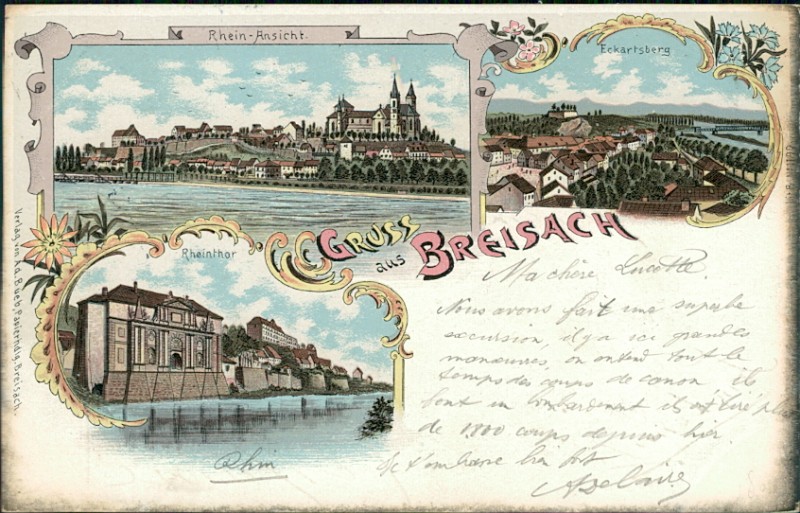 Rhein-Ansicht.
Eckartsberg
Gruss
aus
Breisach
Rheinthor
Verlag von Ad. Bueb, Papierhdlg. Breisach.
Ma chère Lucette.
Nous avons fait une superbe
excursion, il y a ici grandes
manœuvres, on entend tout le
temps des coups de canon ils
font un bombardement ils ont tiré plus
de 1800 coups depuis hier
Je t'embrasse bien fort
Rhin